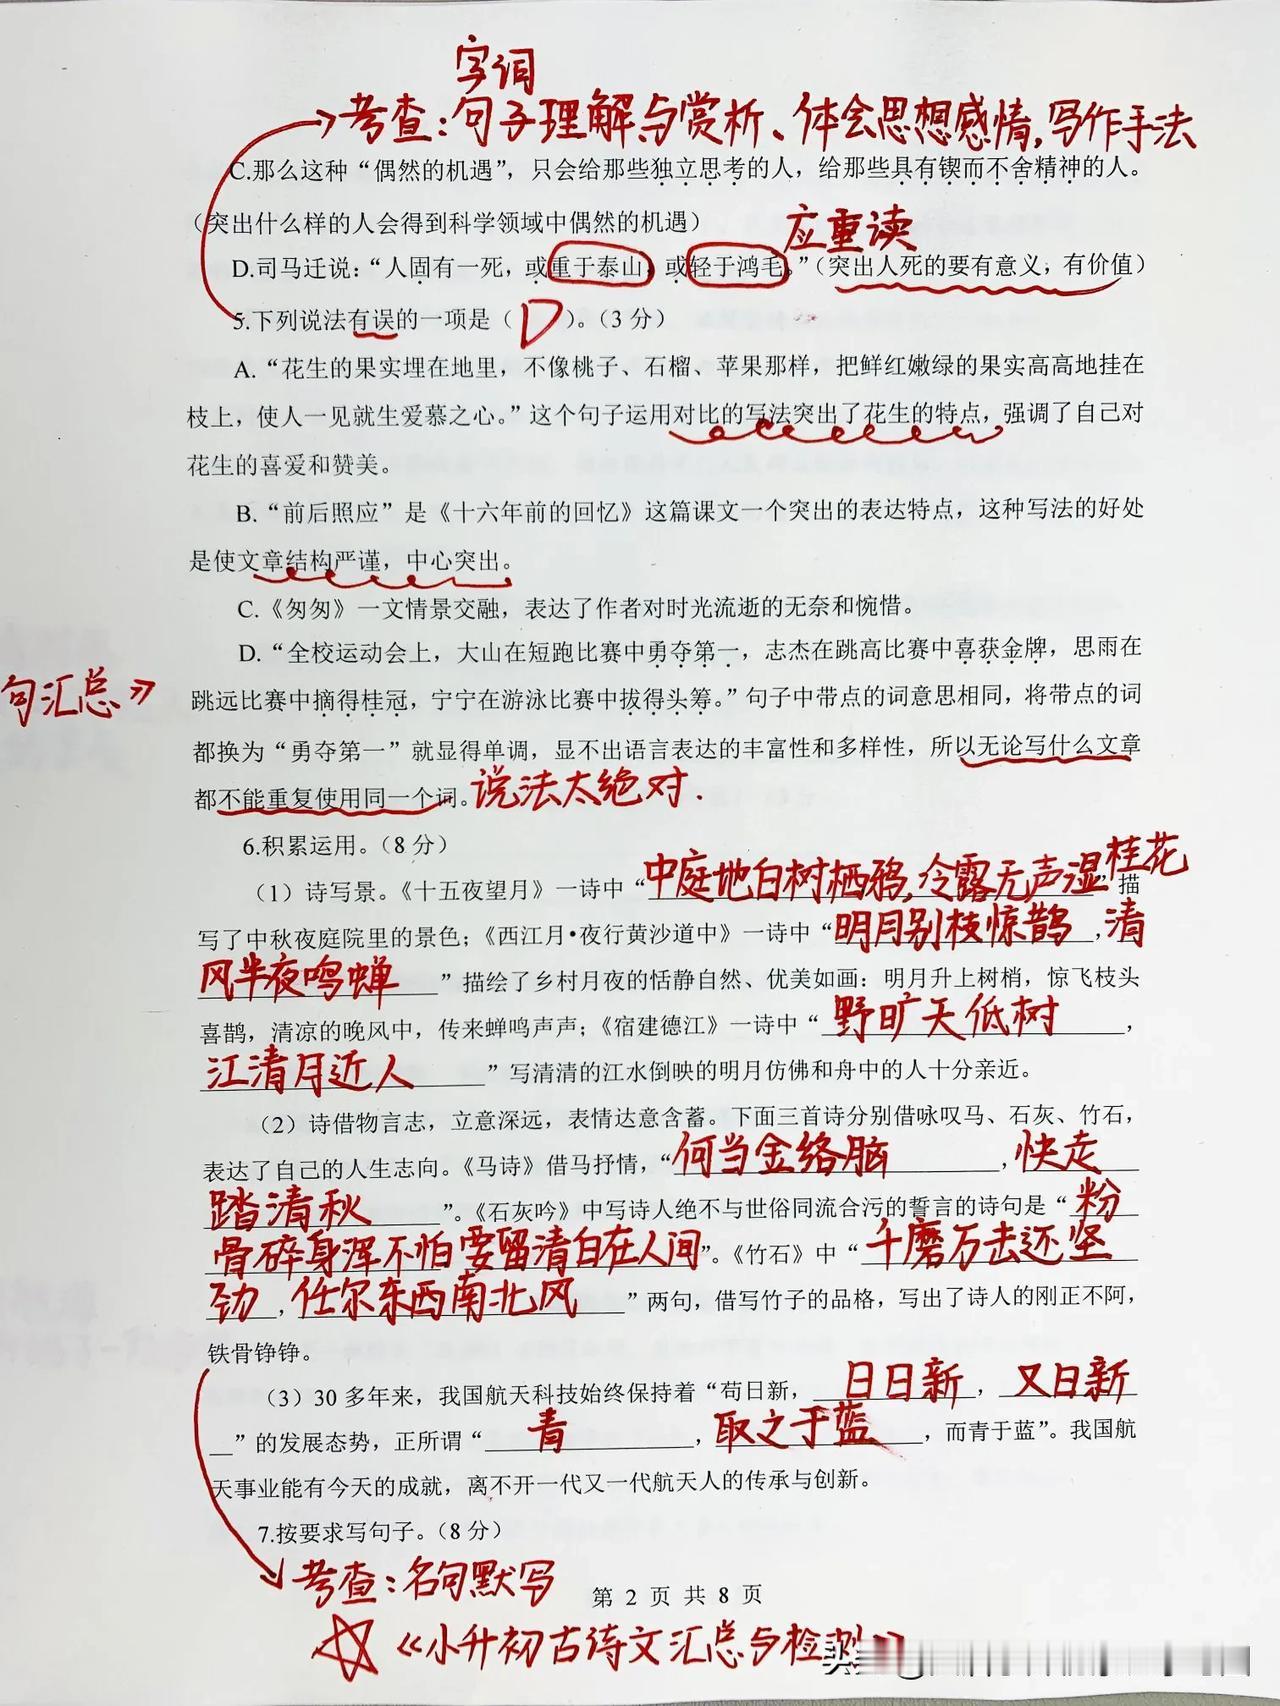 字词
考查：句子理解与赏析、体会思想感情,写作手法
C.那么这种“偶然的机遇”，只会给那些独立思考的人，给那些具有锲而不舍精神的人。
（突出什么样的人会得到科学领域中偶然的机遇）
应重读
D.司马迁说：“人固有一死，或重于泰山，或轻于鸿毛。”（突出人死的要有意义，有价值）
5.下列说法有误的一项是（ D ）。（3 分）
A.“花生的果实埋在地里，不像桃子、石榴、苹果那样，把鲜红嫩绿的果实高高地挂在
枝上，使人一见就生爱慕之心。”这个句子运用对比的写法突出了花生的特点，强调了自己对
花生的喜爱和赞美。
B.“前后照应”是《十六年前的回忆》这篇课文一个突出的表达特点，这种写法的好处
是使文章结构严谨，中心突出。
C.《匆匆》一文情景交融，表达了作者对时光流逝的无奈和惋惜。
D.“全校运动会上，大山在短跑比赛中勇夺第一，志杰在跳高比赛中喜获金牌，思雨在
句汇总》
跳远比赛中摘得桂冠，宁宁在游泳比赛中拔得头筹。”句子中带点的词意思相同，将带点的词
都换为“勇夺第一”就显得单调，显不出语言表达的丰富性和多样性，所以无论写什么文章
都不能重复使用同一个词。说法太绝对.
6.积累运用。（8 分）
（1）诗写景。《十五夜望月》一诗中“中庭地白树栖鸦,冷露无声湿桂花”描
写了中秋夜庭院里的景色；《西江月•夜行黄沙道中》一诗中“明月别枝惊鹊，清
风半夜鸣蝉”描绘了乡村月夜的恬静自然、优美如画：明月升上树梢，惊飞枝头
喜鹊，清凉的晚风中，传来蝉鸣声声；《宿建德江》一诗中“野旷天低树，
江清月近人”写清清的江水倒映的明月仿佛和舟中的人十分亲近。
（2）诗借物言志，立意深远，表情达意含蓄。下面三首诗分别借咏叹马、石灰、竹石，
表达了自己的人生志向。《马诗》借马抒情，“何当金络脑，快走
踏清秋”。《石灰吟》中写诗人绝不与世俗同流合污的誓言的诗句是“粉
骨碎身浑不怕要留清白在人间”。《竹石》中“千磨万击还坚
劲，任尔东西南北风”两句，借写竹子的品格，写出了诗人的刚正不阿，
铁骨铮铮。
（3）30 多年来，我国航天科技始终保持着“苟日新，日日新，又日新
”的发展态势，正所谓“青，取之于蓝，而青于蓝”。我国航
天事业能有今天的成就，离不开一代又一代航天人的传承与创新。
7.按要求写句子。（8 分）
考查：名句默写
第 2 页 共 8 页
《小升初古诗文汇总与检测》